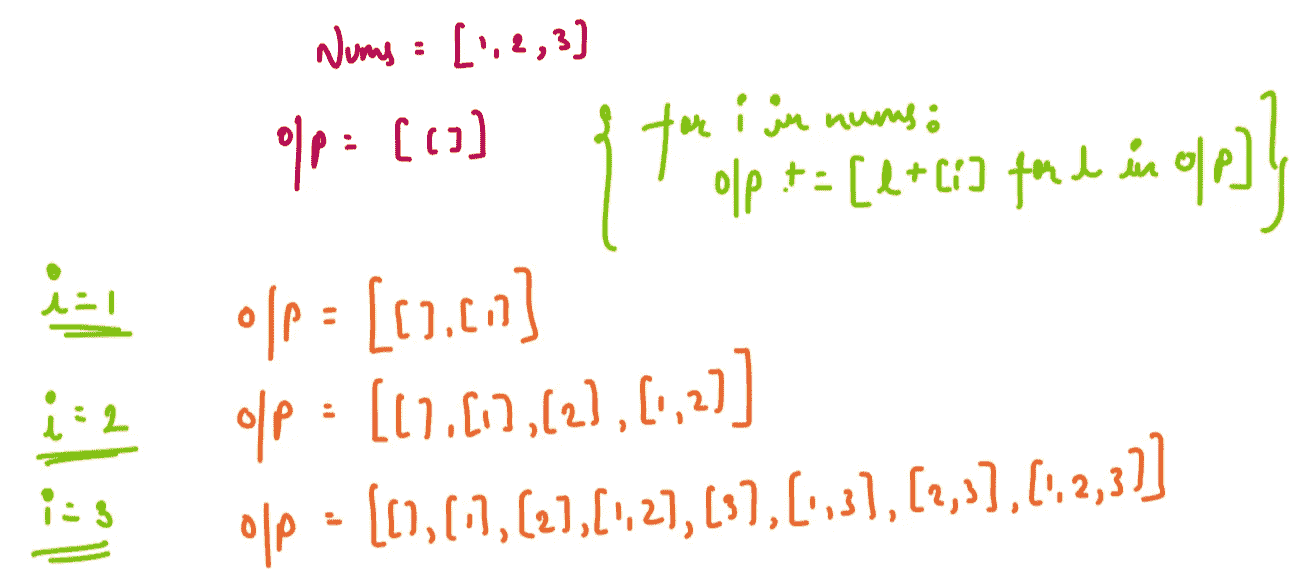 Nums = [1, 2, 3]
o/p = [[]]
{ for i in nums:
o/p += [l+[i] for l in o/p] }
i=1 o/p = [[], [1]]
i=2 o/p = [[], [1], [2], [1,2]]
i=3 o/p = [[], [1], [2], [1,2], [3], [1,3], [2,3], [1,2,3]]